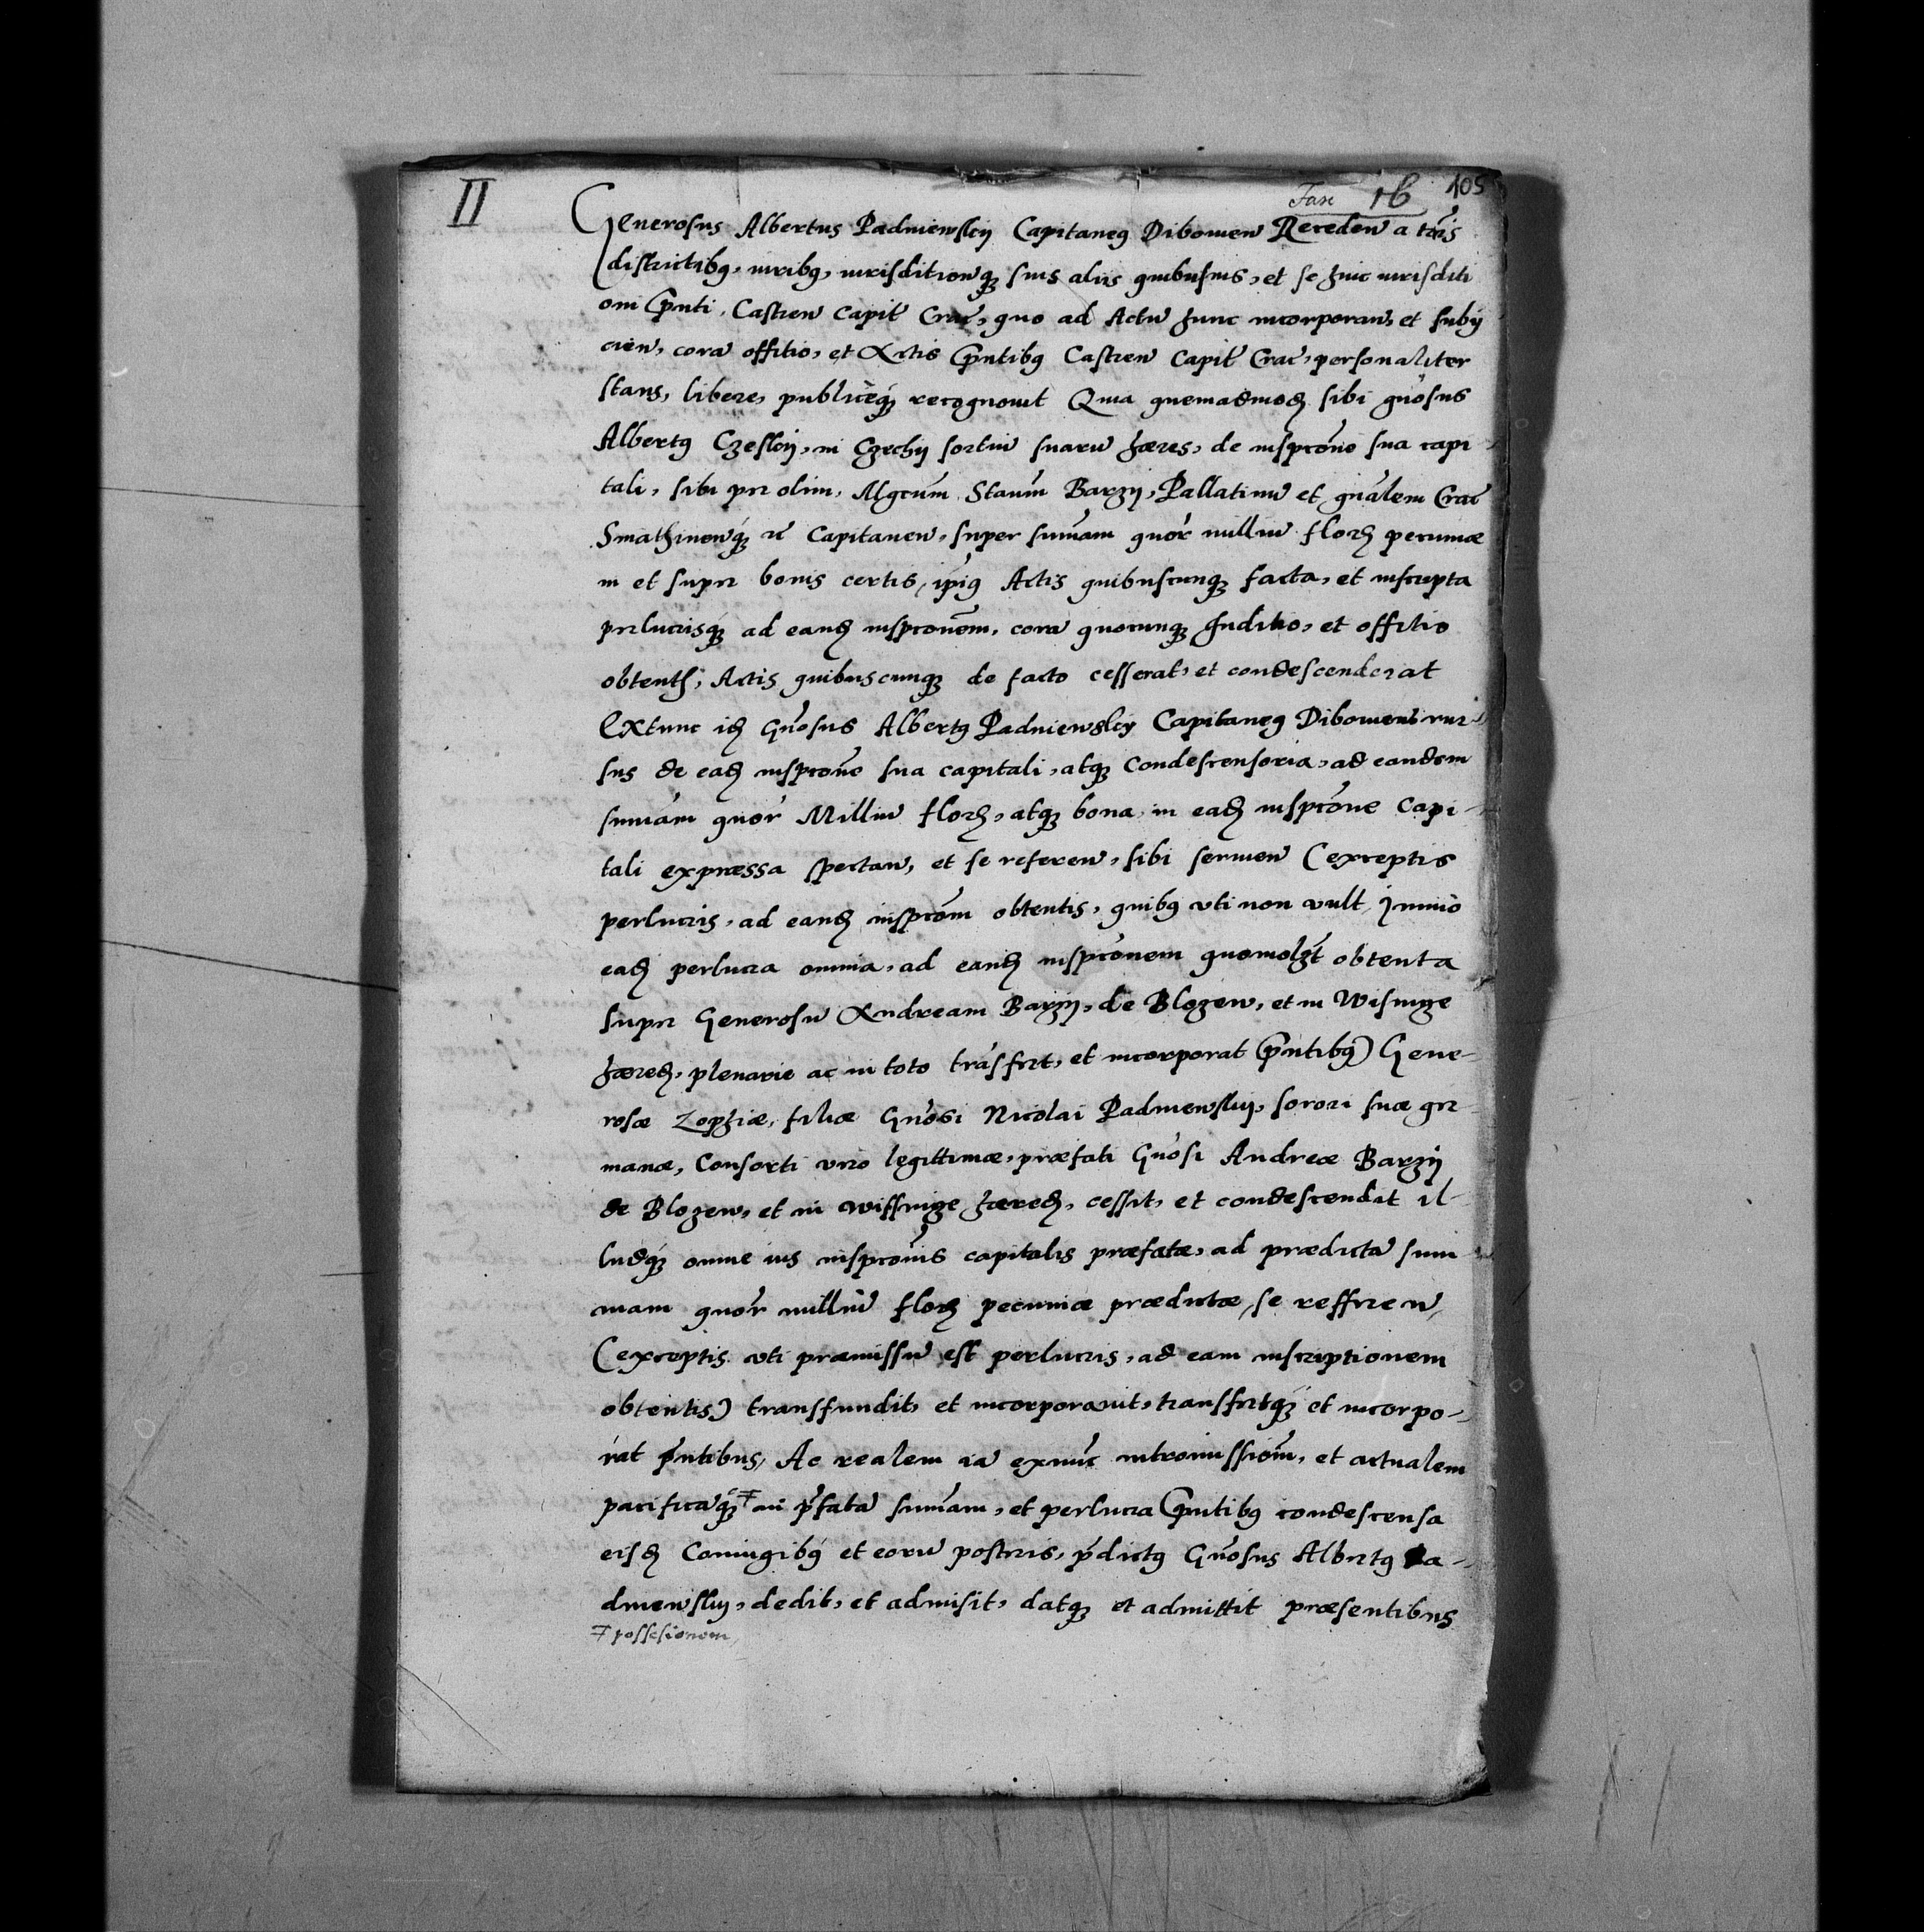 II
Fasc 16 105
Generosus Albertus Padniewskij Capitaneꝰ Dibowien̄ Receden̄ a terris
districtibꝫ, iuribꝫ, iurisditionqꝫ suis aliis quibusuis, et se huic iurisditi
oni Pn̄ti, Castren̄ Capit̄ Crac̄, quo ad Actū hunc incorporan̄, et subij
cien̄, corā offitio, et Actis Pn̄tibꝫ Castren̄ Capit̄ Crac̄, personaliter
stans, libere, publicèqꝫ recognouit Quia quemadmodꝫ sibi gn̄osus
Albertꝰ Czeskij, in Czechy sortiū suarū hæres, de inscrp̄tōne sua capi
tali, sibi per olim, Mgcum Staum̄ Barzy, Pallatinū et gn̄alem Crac̄
Smathinen̄qꝫ &c Capitaneū, super sum̄am quor̄ milliū florꝫ pecuniæ
in et super bonis certis, ip̄iꝰ Actis quibuscunqꝫ facta, et inscripta
perlucrisqꝫ ad eandꝫ inscrp̄tōnem, corā quocunqꝫ Juditio, et offitio
obtentꝭ, Actis quibuscunqꝫ de facto cesserat, et condescenderat
Extunc idꝫ Gn̄osus Albertꝰ Padniewskij Capitaneꝰ Dibowien̄ rur-
sus de eadꝫ inscrp̄tōne sua capitali, atqꝫ condescensoria, ad eandem
sum̄am quor̄ Milliū florꝫ, atqꝫ bona in eadꝫ inscrp̄tōne Capi-
tali expressa spectan̄, et se referen̄, sibi seruien̄ (exceptis
perlucris, ad eandꝫ inscrp̄tōm obtentis, quibꝫ vti non vult, Jmmò
eadꝫ perlucra omnia, ad eandꝫ inscrp̄tōnem quomolꝫt obtenta
super Generosū Andream Barzy, de Blozew, et in Wisnige
hæredꝫ, plenarie ac in toto trāsfert, et incorporat Pn̄tibꝫ) Gene-
rosæ Zophiæ, filiæ Gn̄osi Nicolai Padniewskij, sorori suæ ger
manæ, Consorti vero legittimæ, præfati Gn̄osi Andreæ Barzij
de Blozew, et in Wissnige hæredꝫ, cessit, et condescendit il-
ludqꝫ omne ius inscrp̄tōnis capitalis præfatæ, ad prædictā sum
mam quor̄ milliū florꝫ pecuniæ prædictæ, se refferen̄,
(exceptis vti præmissū est perlucris, ad eam inscriptionem
obtentis) transfundit, et incorporauit, transfertqꝫ et incorpo-
rat pn̄tibus, Ac realem iā exnūc intromissiōm, et actualem
pacificāqꝫ ⹋ in p̄fatā sum̄am, et perlucra Pn̄tibꝫ condescensa
eisdꝫ Coniugibꝫ et eorū posteris, p̄dictꝰ Gn̄osus Albertꝰ Pa-
dniewskij, dedit, et admisit, datqꝫ et admittit præsentibus
⹋ possesionem,